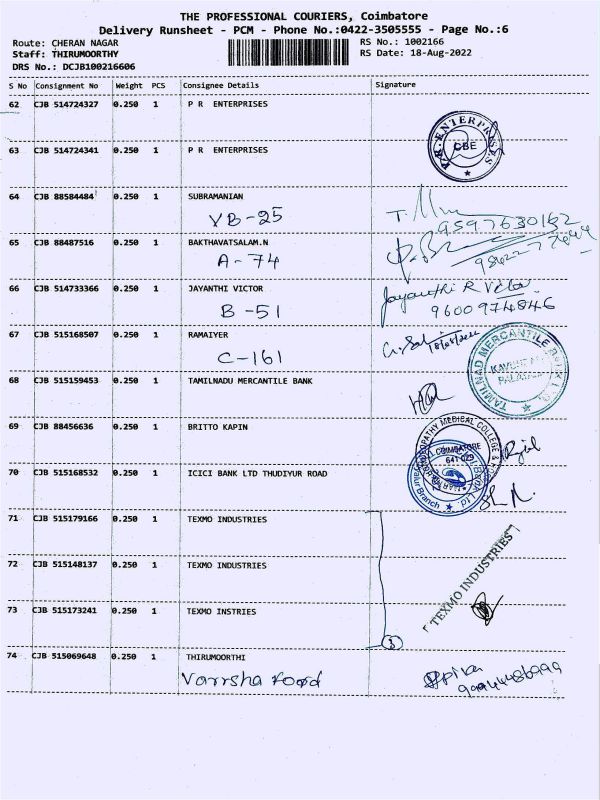 THE PROFESSIONAL COURIERS, Coimbatore
Delivery Runsheet - PCM - Phone No.:0422-3505555 - Page No.:6
Route: CHERAN NAGAR RS No.: 1002166
Staff: THIRUMOORTHY RS Date: 18-Aug-2022
DRS No.: DCJB100216606
S No Consignment No Weight PCS Consignee Details Signature
62 CJB 514724327 0.250 1 P R ENTERPRISES
ENTERPRISES
CBE
63 CJB 514724341 0.250 1 P R ENTERPRISES
64 CJB 88584484 0.250 1 SUBRAMANIAN
VB-25 9597630162
65 CJB 88487516 0.250 1 BAKTHAVATSALAM.N
A-74
66 CJB 514733366 0.250 1 JAYANTHI VICTOR Jayanthi R Victor
B-51 9600974846
67 CJB 515168507 0.250 1 RAMAIYER
C-161
TAMILNAD MERCANTILE BANK LTD.
68 CJB 515159453 0.250 1 TAMILNADU MERCANTILE BANK
69 CJB 88456636 0.250 1 BRITTO KAPIN
HOMOEOPATHY MEDICAL COLLEGE &
COIMBATORE
641 029
70 CJB 515168532 0.250 1 ICICI BANK LTD THUDIYUR ROAD
Branch
71 CJB 515179166 0.250 1 TEXMO INDUSTRIES
72 CJB 515148137 0.250 1 TEXMO INDUSTRIES
TEXMO INDUSTRIES
73 CJB 515173241 0.250 1 TEXMO INSTRIES
3
74 CJB 515069648 0.250 1 THIRUMOORTHI
Varrsha Food